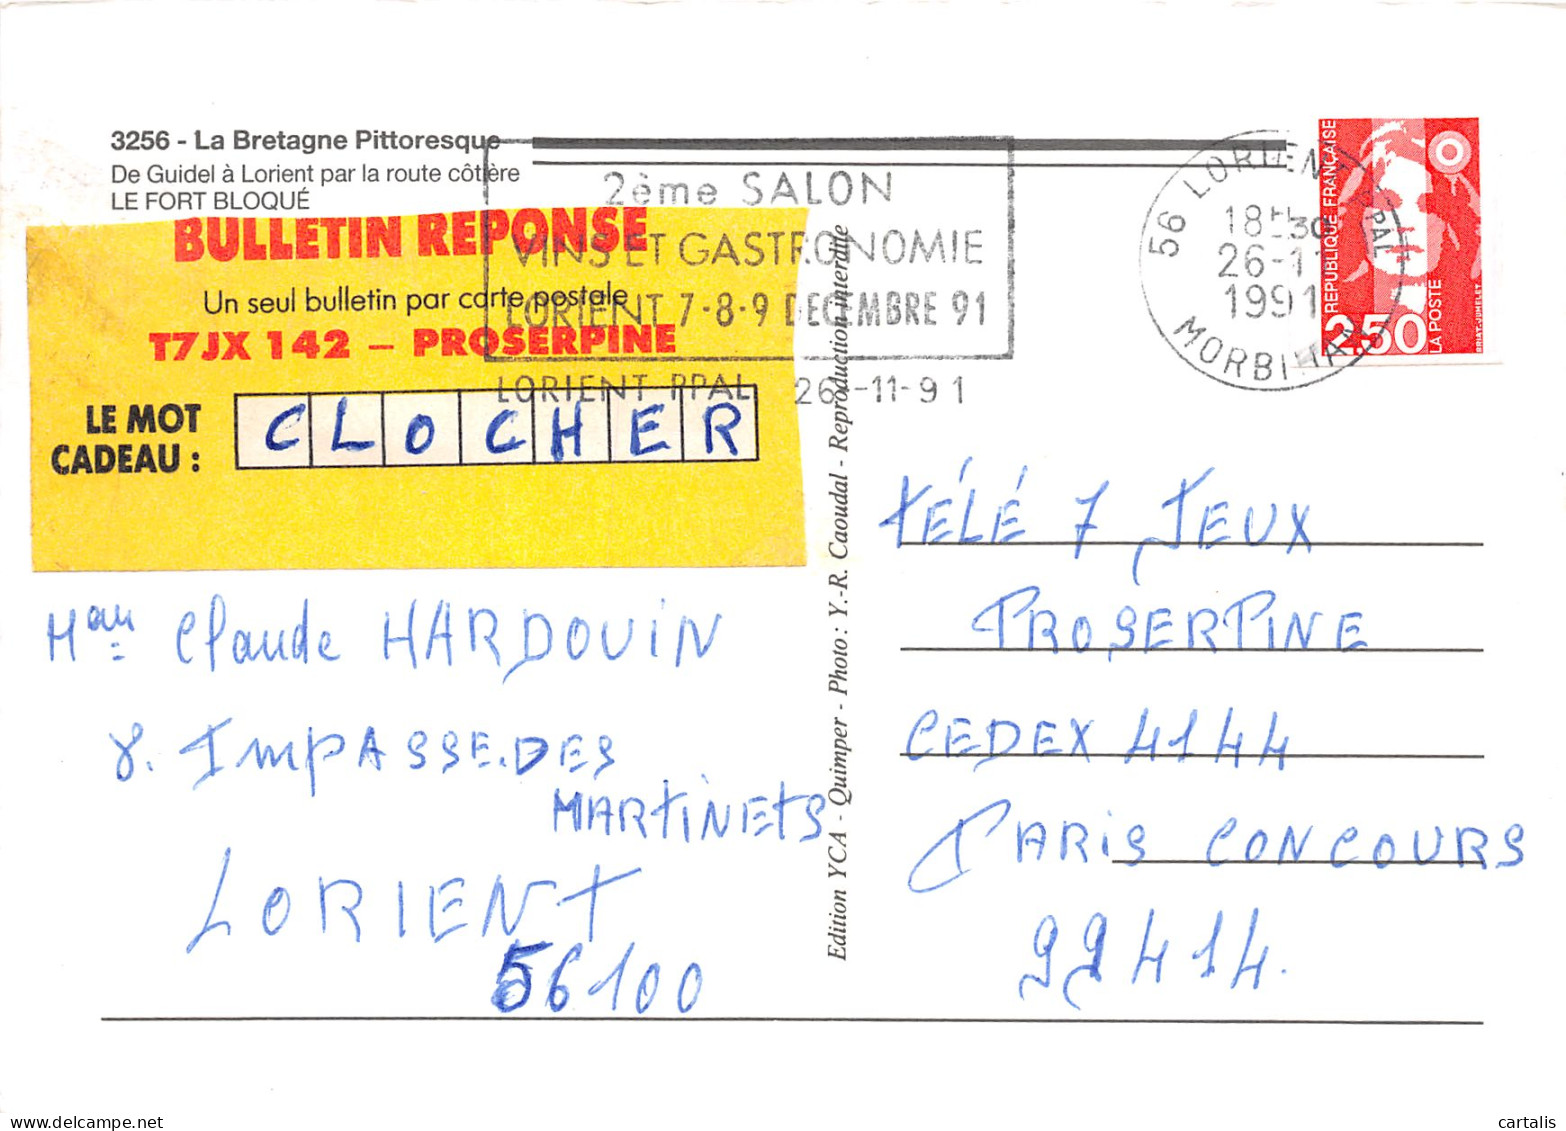 3256 - La Bretagne Pittoresque
De Guidel à Lorient par la route côtière
LE FORT BLOQUÉ
BULLETIN REPONSE
Un seul bulletin par carte postale
T7JX 142 – PROSERPINE
LE MOT
CADEAU :
CLOCHER
2ème SALON
VINS ET GASTRONOMIE
LORIENT 7-8-9 DECEMBRE 91
LORIENT PPAL 26-11-91
56 LORIENT PPAL
18H30
26-11
1991
MORBIHAN
REPUBLIQUE FRANÇAISE
2,50
LA POSTE
BRIAT-JUMELET
Claude HARDOUIN
8. IMPASSE.DES
MARTINETS
LORIENT
56100
Edition YCA - Quimper - Photo : Y.-R. Caoudal - Reproduction interdite
TÉLÉ 7 JEUX
PROSERPINE
CEDEX 4144
PARIS CONCOURS
99414.
cartalis